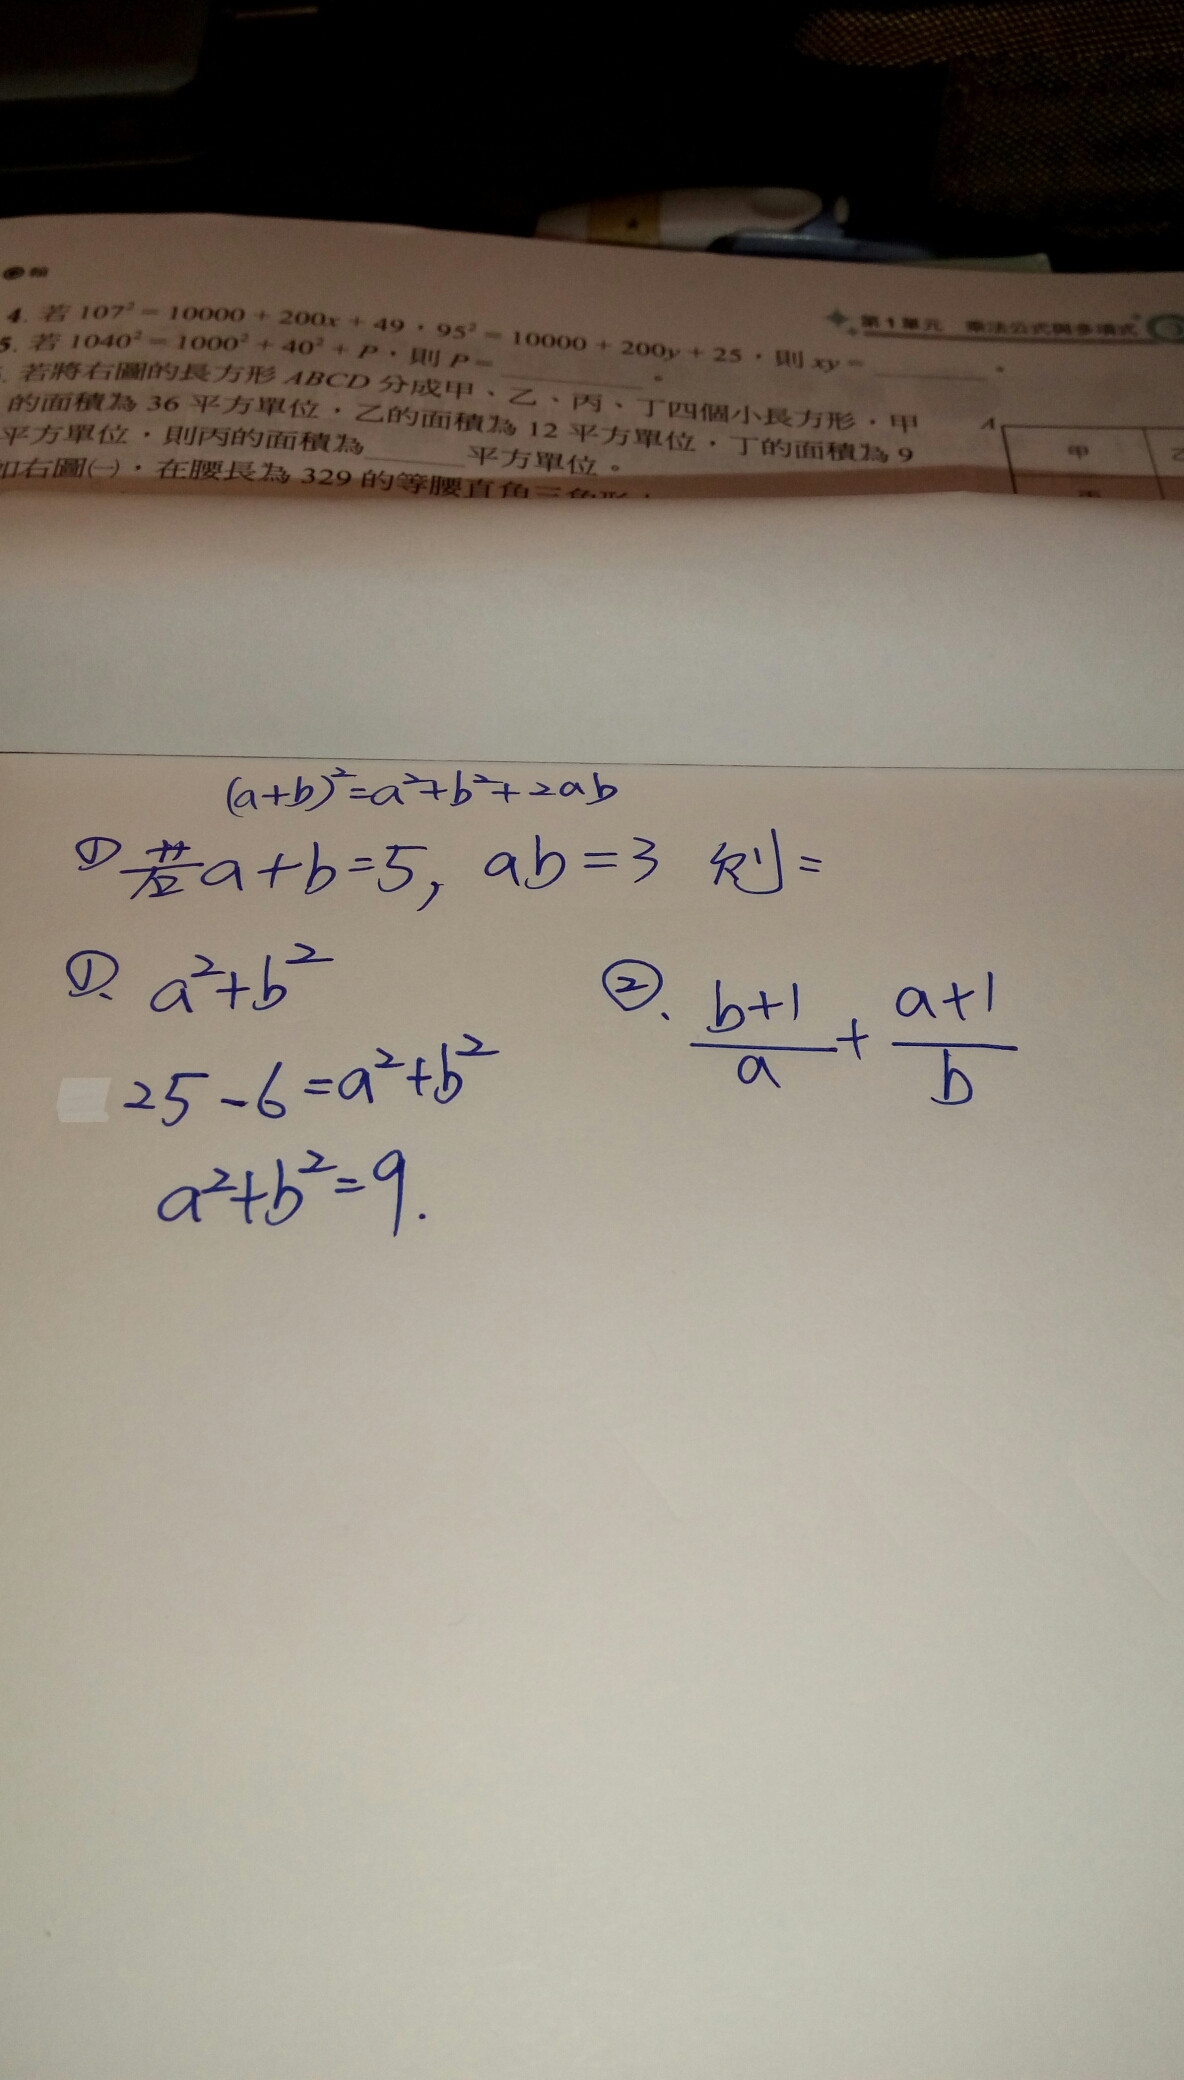 第1單元 乘法公式與多項式
4. 若 107² = 10000 + 200x + 49，95² = 10000 + 200y + 25，則 xy = ______。
5. 若 1040² = 1000² + 40² + P，則 P = ______。
. 若將右圖的長方形 ABCD 分成甲、乙、丙、丁四個小長方形，甲
的面積為 36 平方單位，乙的面積為 12 平方單位，丁的面積為 9
平方單位，則丙的面積為______平方單位。
如右圖(一)，在腰長為 329 的等腰直角三角形，
A
甲
乙
丙
(a+b)²=a²+b²+2ab
① 若a+b=5, ab=3 則=
①. a²+b²
25-6=a²+b²
a²+b²=9.
②. b+1/a + a+1/b